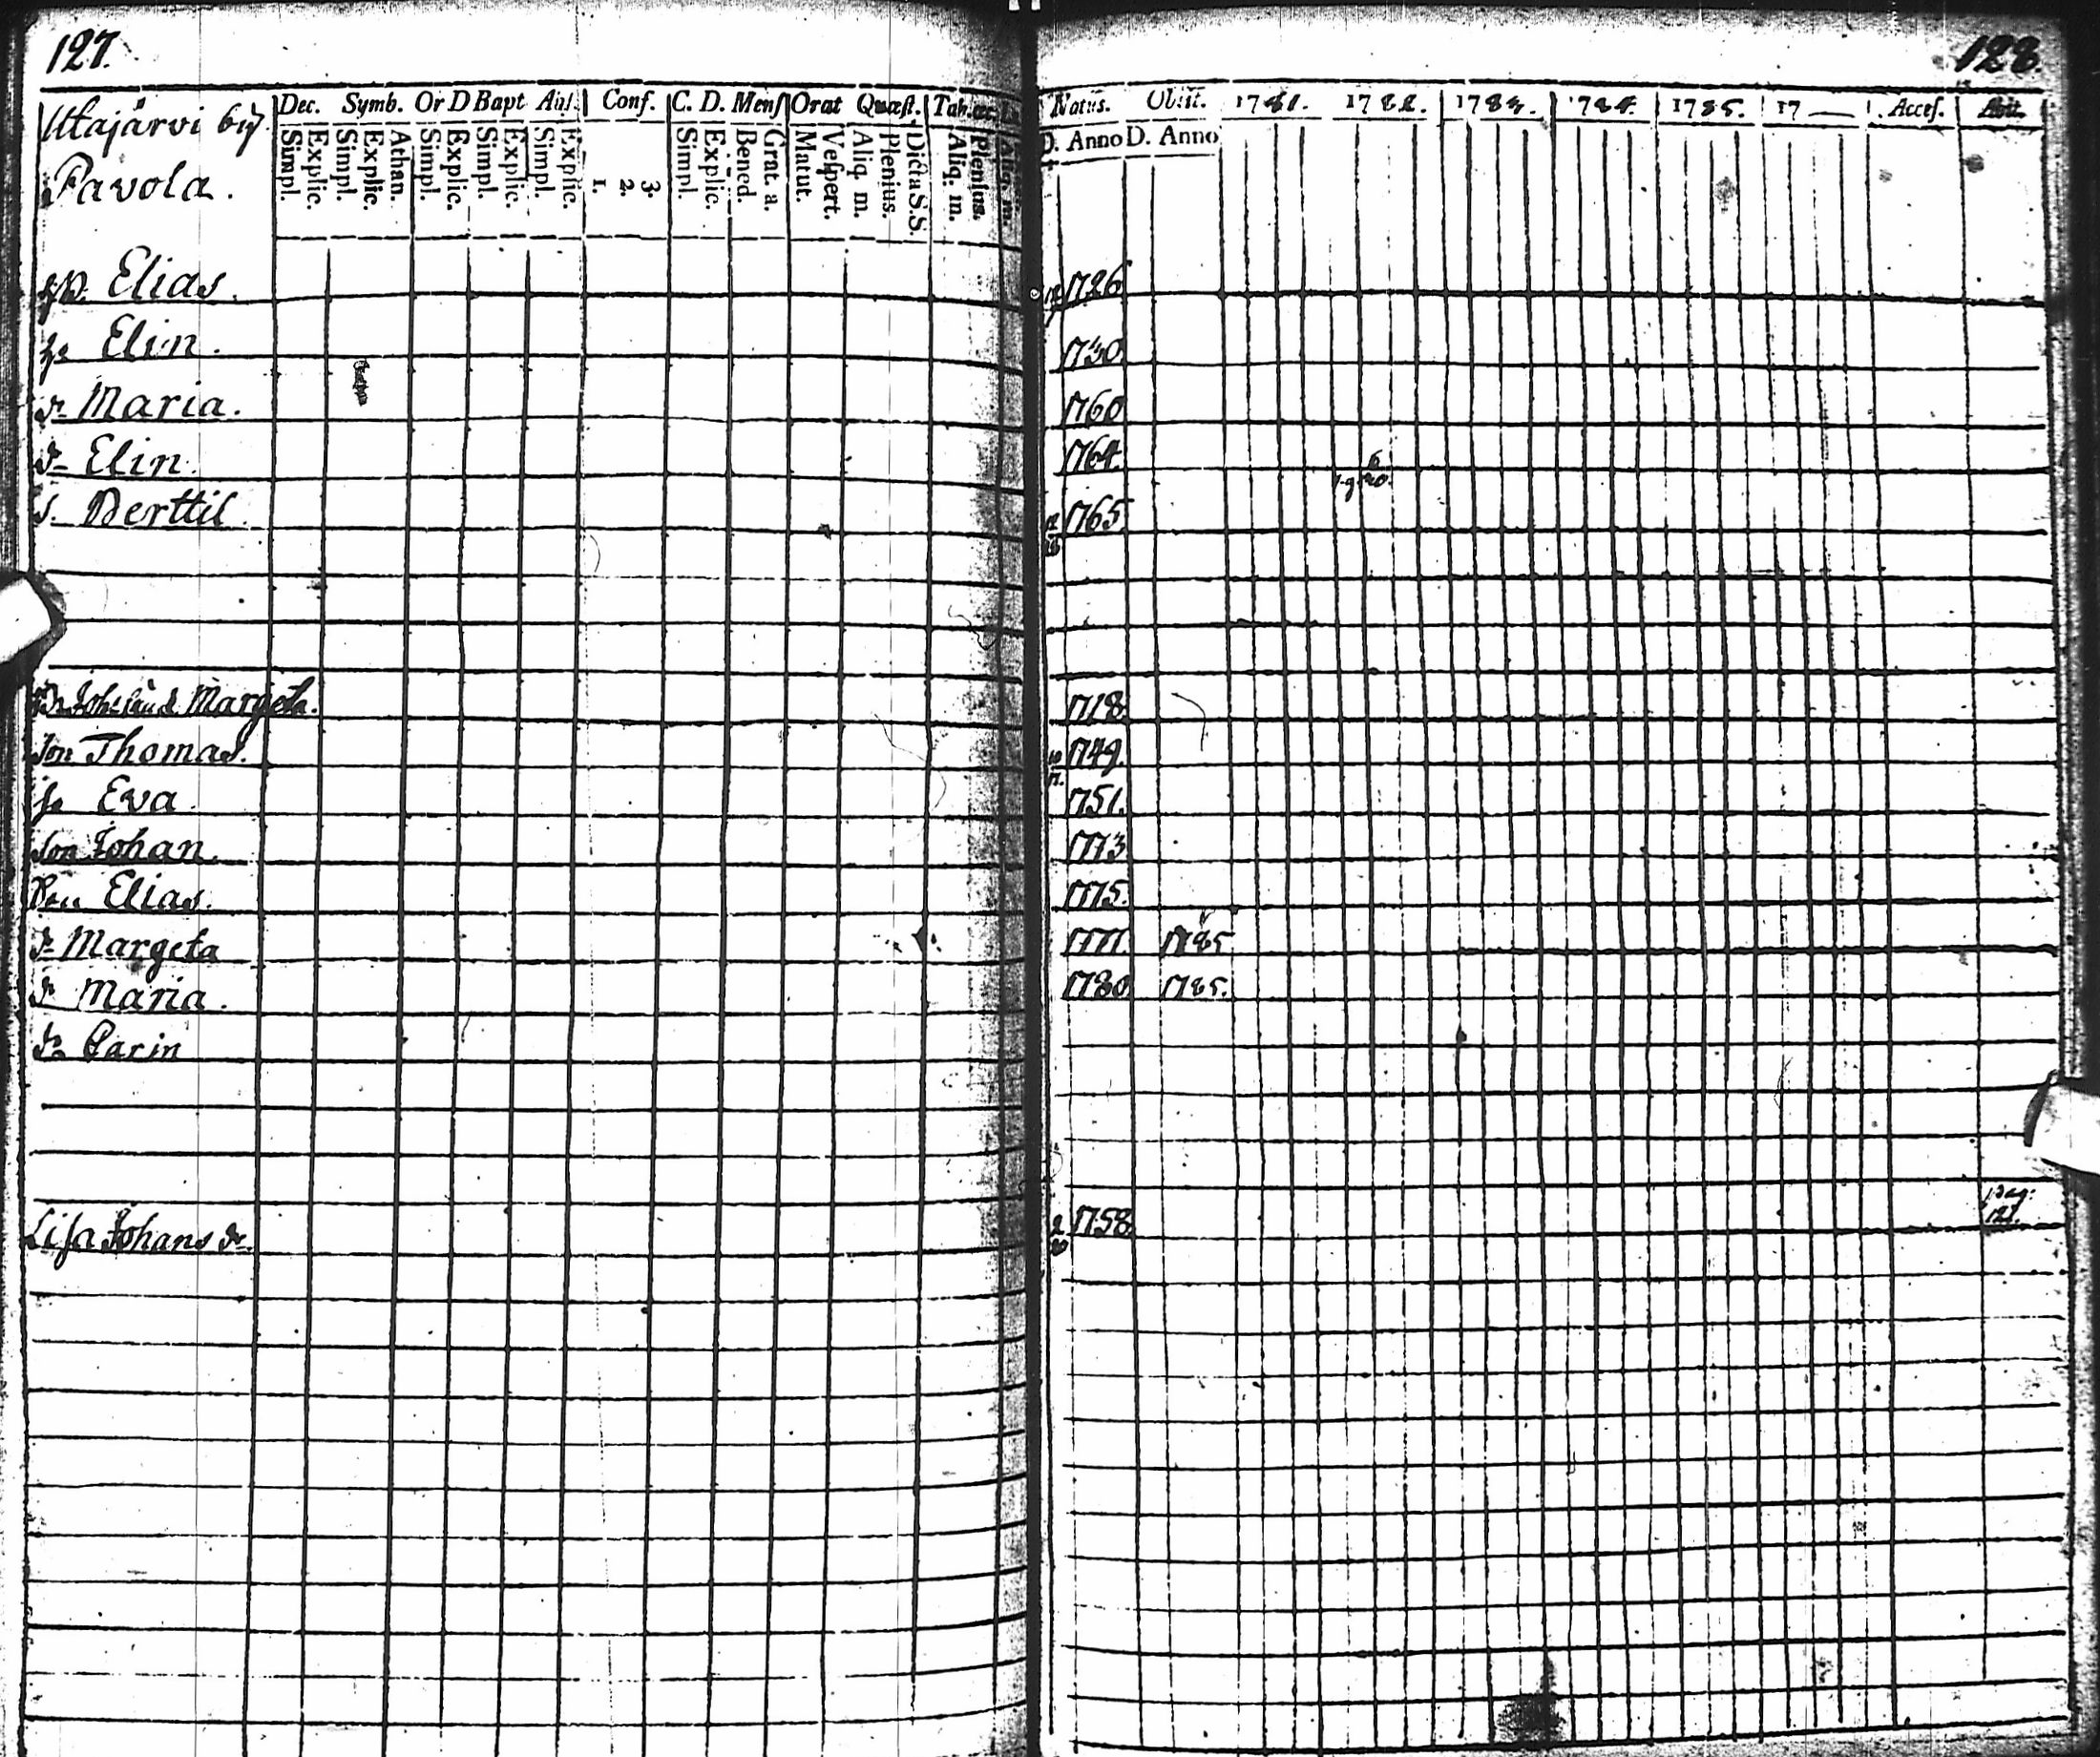 127.
128.
Utajärvi by.
Pavola.
Dec. Symb. Or D Bapt Abs. Conf. C. D. Menſ Orat Quæſt. Tab. œc.
Simpl. Explic. Simpl. Explic. Athan. Simpl. Explic. Simpl. Explic. Simpl. Explic. 1. 2. 3. Simpl. Explic. Bened. Grat. a. Matut. Veſpert. Aliq. m. Plenius. Dicta S.S. Aliq. m. Plenius. Aliq. m.
Natus. Obiit. 1781. 1782. 1783. 1784. 1785. 17 Acceſ. Abit.
D. Anno D. Anno
Elias. 1726
h. Elin. 1730.
dr Maria. 1760
dr Elin. 1764.
s. Berttil. 12/26 1765.
Margeta. 1718.
Son Thomas. 1749.
h. Eva. 1751.
Son Johan. 1773
Elias. 1775.
dr Margeta 1777. 1785
dr Maria. 1780. 1785.
dr Carin
Lisa Johans dr. 2/20 1758. pag: